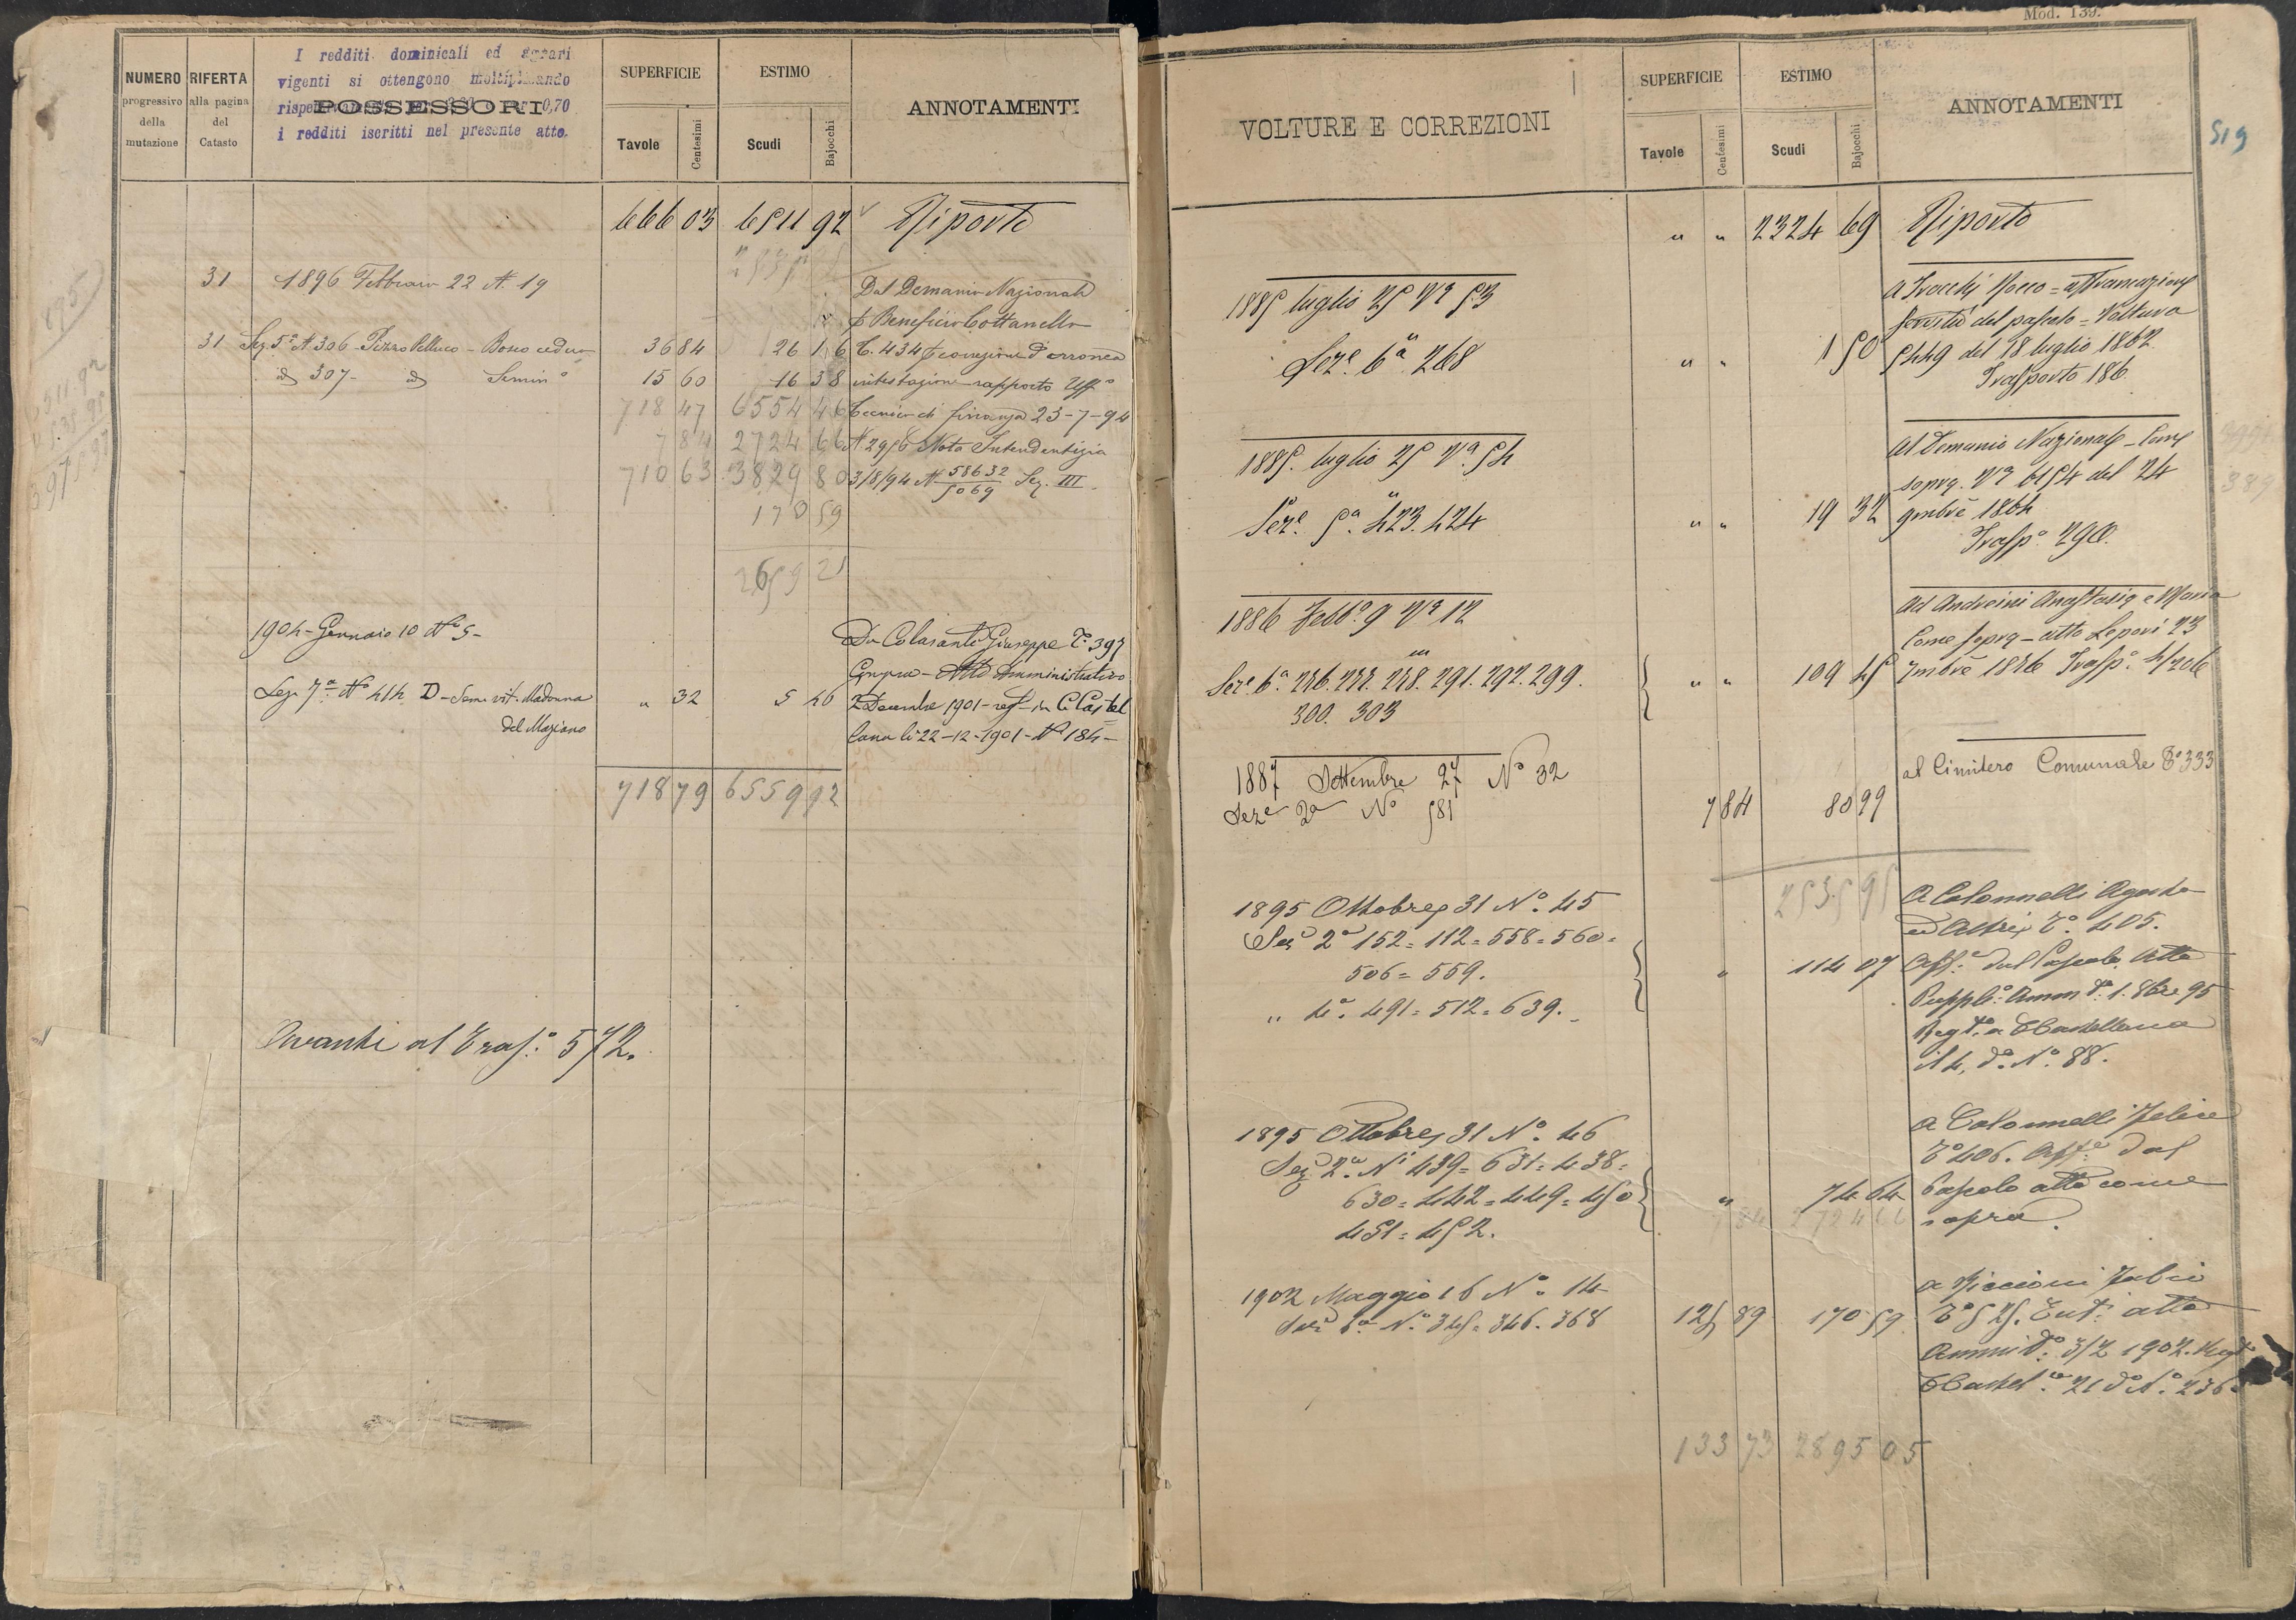 I redditi dominicali ed agrari
vigenti si ottengono moltiplicando
0,70
i redditi iscritti nel presente atto.
NUMERO progressivo della mutazione
RIFERTA alla pagina del Catasto
POSSESSORI
SUPERFICIE
Tavole
Centesimi
ESTIMO
Scudi
Bajocchi
ANNOTAMENTI
666 03 6511 92 Riporto
31 1896 Febbraio 22 N. 19 Dal Demanio Nazionale
p Beneficio Cottanello
31 Sez 5ª N 306 - Pizzo - Bosco ceduo 36 84 26 16 T. 434 p correzione d'erronea
id 307 - id Semin° 15 60 16 38 intestazione - rapporto Uff°
718 47 6554 46 Tecnico di finanza 23-7-94
7 84 2724 66 N. 2956 Nota Intendentizia
710 63 3829 80 3/8/94 N 58632/5069 Sez. III
170 59
2659 21
1904 - Gennaio 10 N° 5 - Da Colasanti Giuseppe T° 397
Compra - Atto Amministrativo
Sez 7ª N° 414 D - Sem. vit. Madonna " 32 5 46 2 Decembre 1901 - reg in CCastel
del Maziano lana li 22-12-1901 - N° 184 -
718 79 6559 92
Avanti al Trasf.° 572.
Mod. 139.
519
VOLTURE E CORREZIONI
SUPERFICIE
Tavole
Centesimi
ESTIMO
Scudi
Bajocchi
ANNOTAMENTI
" " 2324 69 Riporto
1885 luglio 25 N° 53 A Rocco = affrancazione
del pascolo = Voltura
Sez.e 6ª 268 " " 1 50 5449 del 18 luglio 1862.
Trasporto 186.
1885. luglio 25 N° 54 Al Demanio Nazionale - Come
sopra. N° 6154 del 24
Sez.e 5ª 423. 424 " " 19 32 9mbre 1864
Trasp° 290.
1886 Febb° 9 N° 12 Ad Andreini Anastasia e Maria
Come sopra - atto Lepori 23
Sez.e 6ª 291. 292. 299. " " 109 45 7mbre
300. 303
1887 Settembre 27 N° 32 al Cimitero Comunale T° 333
Seze 2ª N° 581 7 84 80 99
2535 95
1895 Ottobre 31 N°. 45 A Colonnelli Agosto
Sez 2ª 152 = 112 = 558 = 560 = ed Altri T°. 405.
506 = 559. " 114 07 Aff.e dal Pascolo Atto
" 4ª. 491 = 512 = 639. 1. 8bre 95
Regto. a CCastellana
il 4, d° N° 88.
1895 Ottobre 31 N°. 46 A Colonnelli Felice
Sez 2ª Ni 439 = 631 = 438 = T° 406. Aff.e dal
630 = 442 = 449 = 450 " 74 64 Pascolo atto come
451 = 452. sopra.
7 84 2724 66
1902 Maggio 16 N° 14 a Piccioni Fabio
Sez 6ª N° 345 = 346. 368 125 89 170 59 T° 525. atto
3/2 1902. Regt°
CCastel. 21 d° N° 236
133 73 2895 05